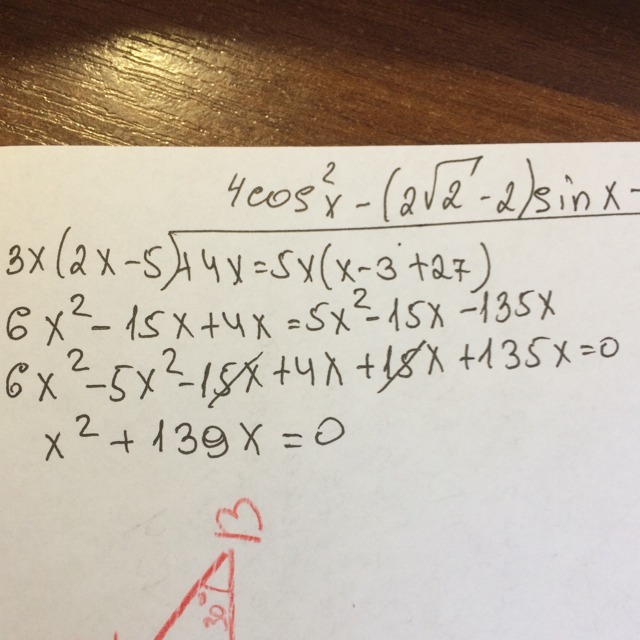 4cos²x - (2√2 - 2)sinx -
3x(2x-5)+4x=5x(x-3+27)
6x²-15x+4x=5x²-15x-135x
6x²-5x²-15x+4x+15x+135x=0
x²+139x=0
B
30°